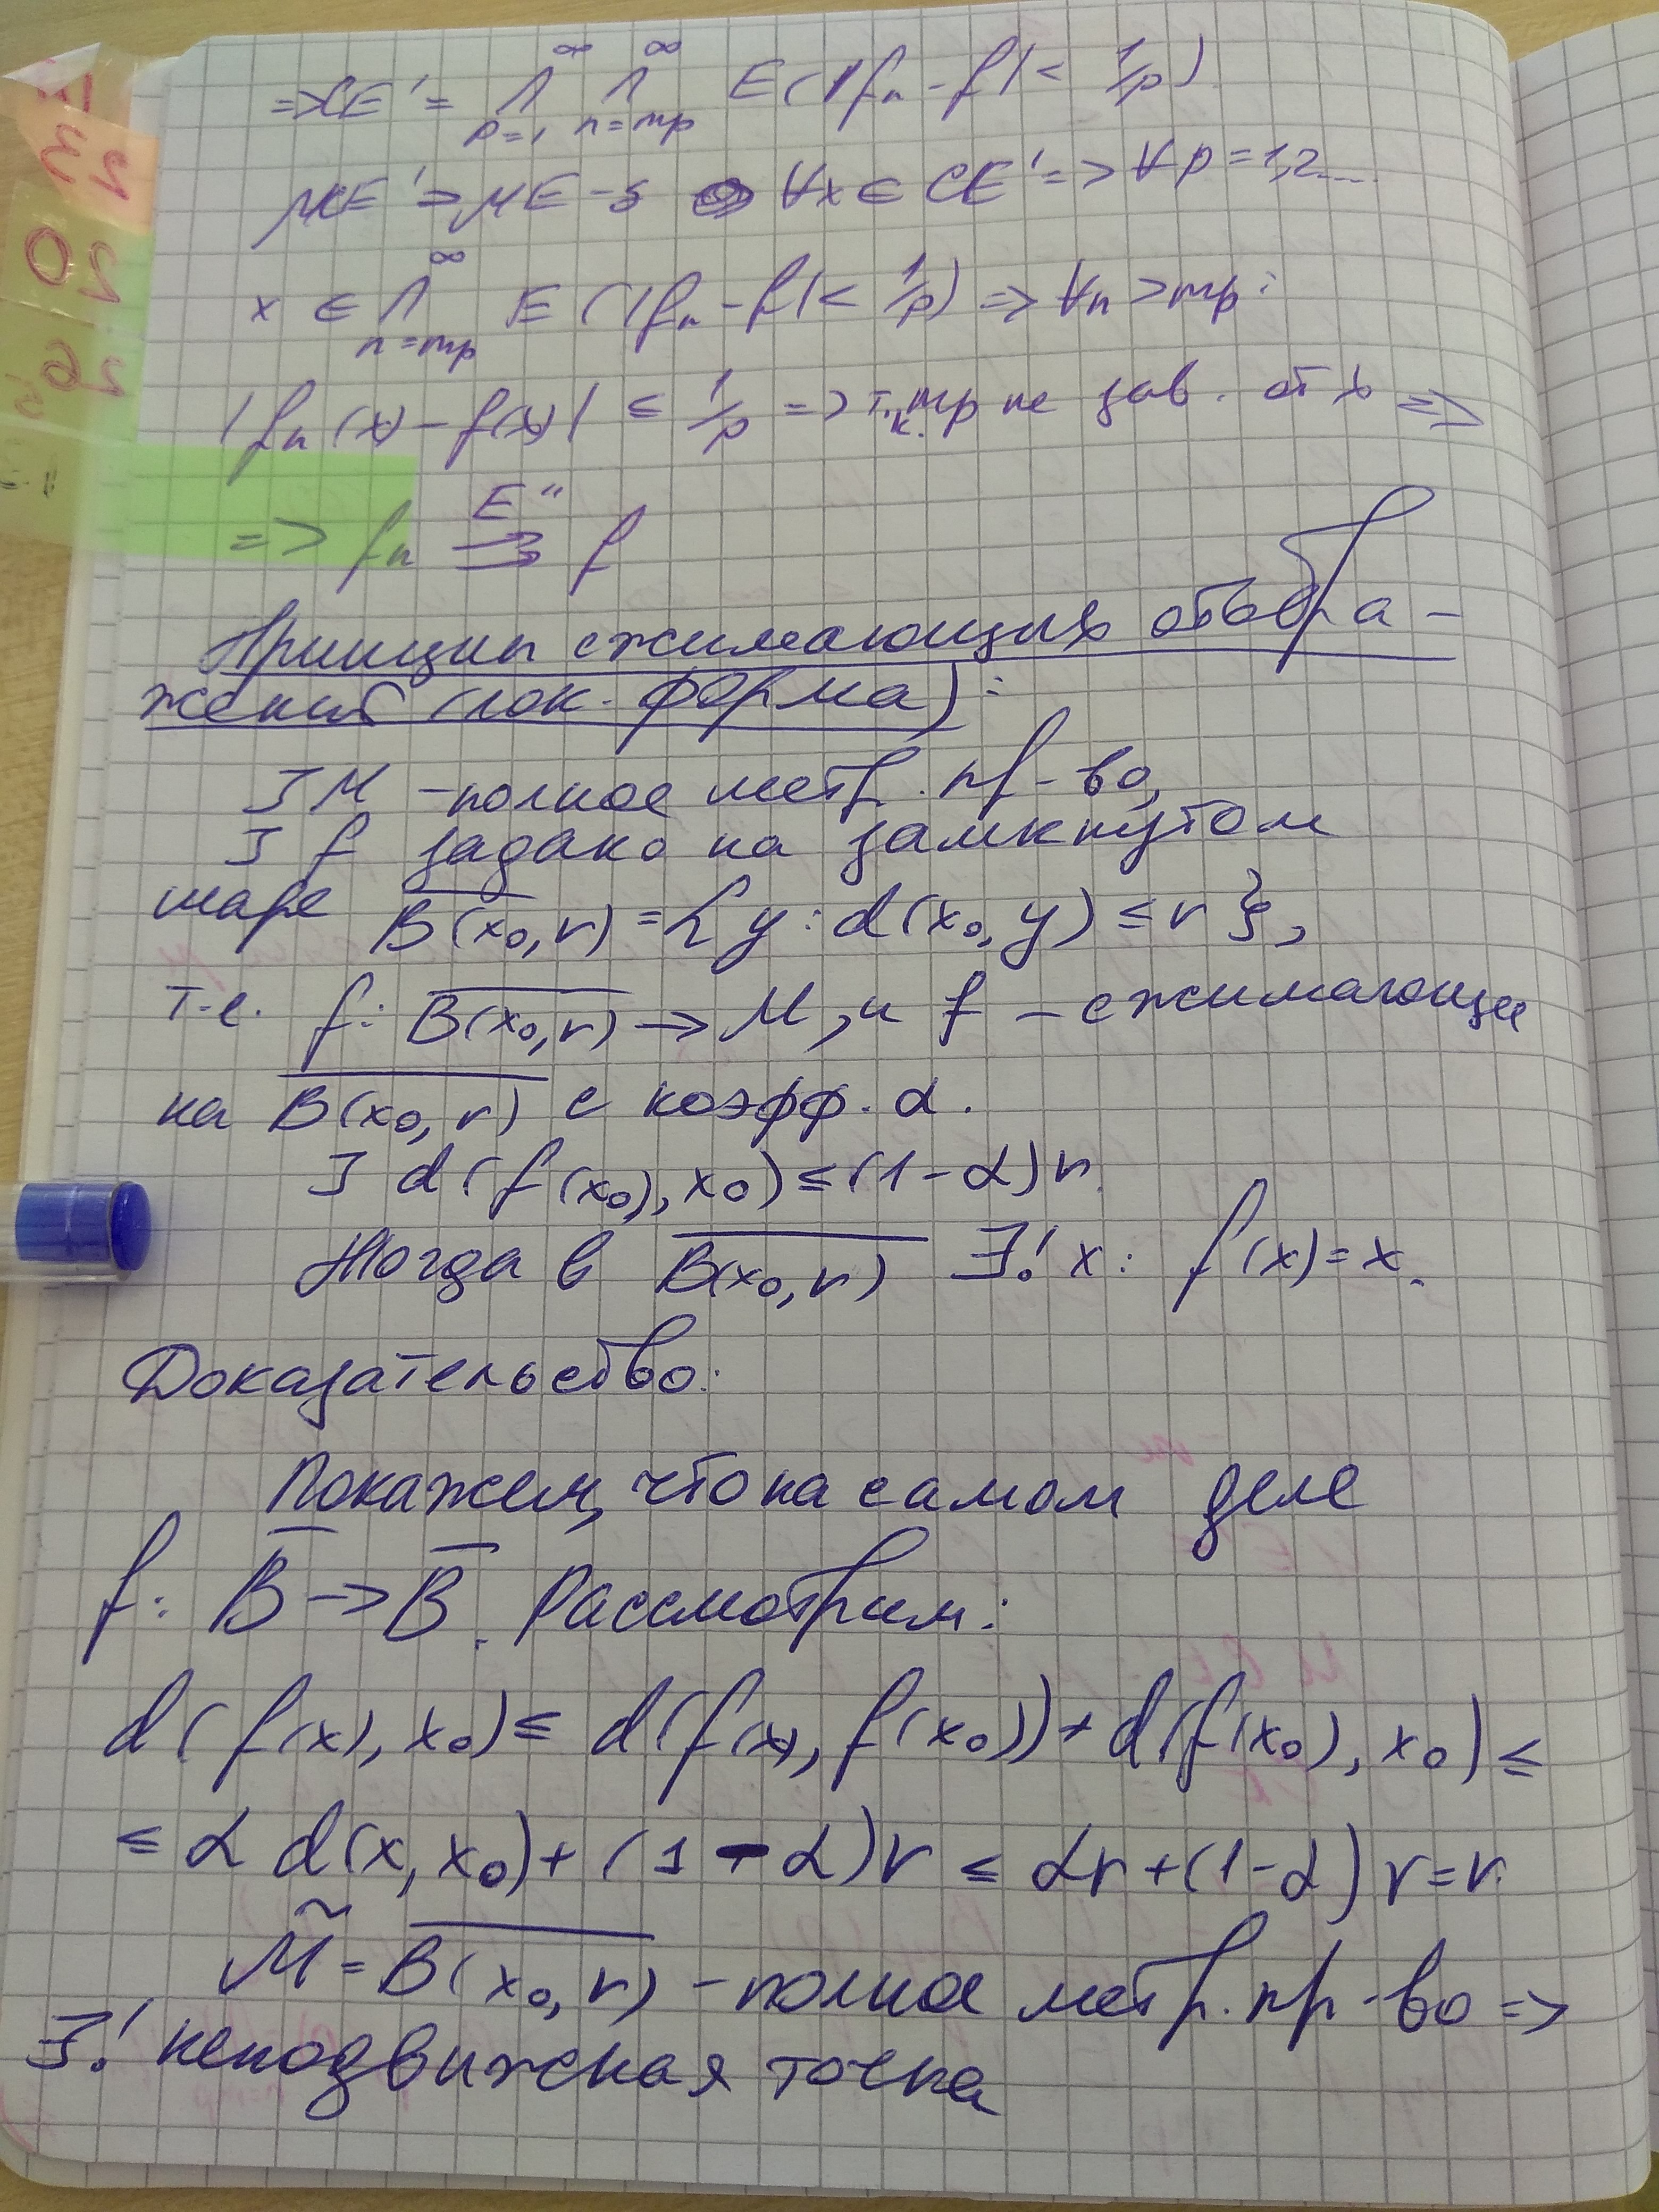 => CE' = ∩_{p=1}^{∞} ∩_{n=m_p}^{∞} E(|f_n - f| < 1/p)
μE' => μE - δ ∀x ∈ CE' => ∀p = 1,2....
x ∈ ∩_{n=m_p}^{∞} E(|f_n - f| < 1/p) => ∀n > m_p:
|f_n(x) - f(x)| ≤ 1/p => т.к. m_p не зав. от x =>
=> f_n ⇉^{E''} f
Принцип сжимающих отобра-
жений (лок. форма):
] M - полное метр. пр-во,
] f задано на замкнутом
шаре \overline{B(x_0, r)} = { y : d(x_0, y) ≤ r },
т.е. f: \overline{B(x_0, r)} → M, и f - сжимающее
на \overline{B(x_0, r)} с коэфф. α.
] d(f(x_0), x_0) ≤ (1-α)r.
Тогда в \overline{B(x_0, r)} ∃! x: f(x) = x.
Доказательство:
Покажем, что на самом деле
f: \overline{B} → \overline{B}. Рассмотрим:
d(f(x), x_0) ≤ d(f(x), f(x_0)) + d(f(x_0), x_0) ≤
≤ α d(x, x_0) + (1 - α)r ≤ αr + (1-α)r = r.
\tilde{M} = \overline{B(x_0, r)} - полное метр. пр-во =>
∃! неподвижная точка